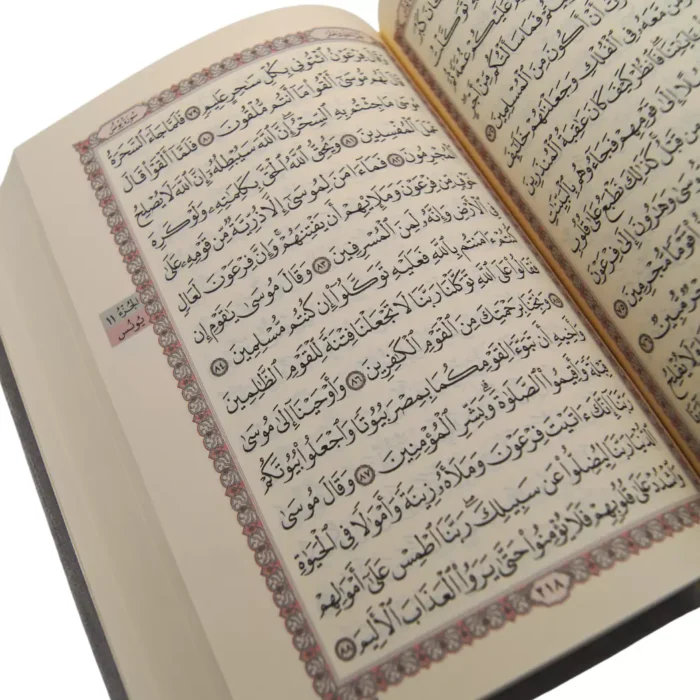 كَانَ كَبُرَ
تَوَكَّلْتُ
عَلَيْكُمْ غُمَّةً
فَمَا سَأَلْتُكُم مِّنْ أَجْرٍ
أَنْ أَكُونَ مِنَ ٱلْمُسْلِمِينَ ٧٢
مَّعَهُۥ فِي ٱلْفُلْكِ وَجَعَلْنَٰهُمْ خَلَٰٓئِفَ
فَٱنظُرْ كَيْفَ كَانَ عَٰقِبَةُ ٱلْمُنذَرِينَ
إِلَىٰ قَوْمِهِمْ فَجَآءُوهُم بِٱلْبَيِّنَٰتِ
مِن قَبْلُ كَذَٰلِكَ نَطْبَعُ عَلَىٰ قُلُوبِ
مُّوسَىٰ وَهَٰرُونَ إِلَىٰ فِرْعَوْنَ
قَوْمًا مُّجْرِمِينَ ٧٥
مُّبِينٌ ٧٦
وَلَا يُفْلِحُ
سُورَةُ يُونُسَ
وَقَالَ فِرْعَوْنُ ٱئْتُونِي بِكُلِّ سَٰحِرٍ عَلِيمٍ ٧٩ فَلَمَّا جَآءَ ٱلسَّحَرَةُ
قَالَ لَهُم مُّوسَىٰٓ أَلْقُواْ مَآ أَنتُم مُّلْقُونَ ٨٠ فَلَمَّآ أَلْقَوْاْ قَالَ
مُوسَىٰ مَا جِئْتُم بِهِ ٱلسِّحْرُۖ إِنَّ ٱللَّهَ سَيُبْطِلُهُۥٓ إِنَّ ٱللَّهَ لَا يُصْلِحُ
عَمَلَ ٱلْمُفْسِدِينَ ٨١ وَيُحِقُّ ٱللَّهُ ٱلْحَقَّ بِكَلِمَٰتِهِۦ وَلَوْ كَرِهَ
ٱلْمُجْرِمُونَ ٨٢ فَمَآ ءَامَنَ لِمُوسَىٰٓ إِلَّا ذُرِّيَّةٌ مِّن قَوْمِهِۦ عَلَىٰ
خَوْفٍ مِّن فِرْعَوْنَ وَمَلَإِيْهِمْ أَن يَفْتِنَهُمْۚ وَإِنَّ فِرْعَوْنَ لَعَالٍ
فِي ٱلْأَرْضِ وَإِنَّهُۥ لَمِنَ ٱلْمُسْرِفِينَ ٨٣ وَقَالَ مُوسَىٰ يَٰقَوْمِ إِن
كُنتُمْ ءَامَنتُم بِٱللَّهِ فَعَلَيْهِ تَوَكَّلُوٓاْ إِن كُنتُم مُّسْلِمِينَ ٨٤
فَقَالُواْ عَلَى ٱللَّهِ تَوَكَّلْنَا رَبَّنَا لَا تَجْعَلْنَا فِتْنَةً لِّلْقَوْمِ ٱلظَّٰلِمِينَ
٨٥ وَنَجِّنَا بِرَحْمَتِكَ مِنَ ٱلْقَوْمِ ٱلْكَٰفِرِينَ ٨٦ وَأَوْحَيْنَآ إِلَىٰ مُوسَىٰ
وَأَخِيهِ أَن تَبَوَّءَا لِقَوْمِكُمَا بِمِصْرَ بُيُوتًا وَٱجْعَلُواْ بُيُوتَكُمْ
قِبْلَةً وَأَقِيمُواْ ٱلصَّلَوٰةَۗ وَبَشِّرِ ٱلْمُؤْمِنِينَ ٨٧ وَقَالَ مُوسَىٰ
رَبَّنَآ إِنَّكَ ءَاتَيْتَ فِرْعَوْنَ وَمَلَأَهُۥ زِينَةً وَأَمْوَٰلًا فِي ٱلْحَيَوٰةِ
ٱلدُّنْيَا رَبَّنَا لِيُضِلُّواْ عَن سَبِيلِكَۖ رَبَّنَا ٱطْمِسْ عَلَىٰٓ أَمْوَٰلِهِمْ
وَٱشْدُدْ عَلَىٰ قُلُوبِهِمْ فَلَا يُؤْمِنُواْ حَتَّىٰ يَرَوُاْ ٱلْعَذَابَ ٱلْأَلِيمَ ٨٨
الجزء ١١
يونس
٢١٨